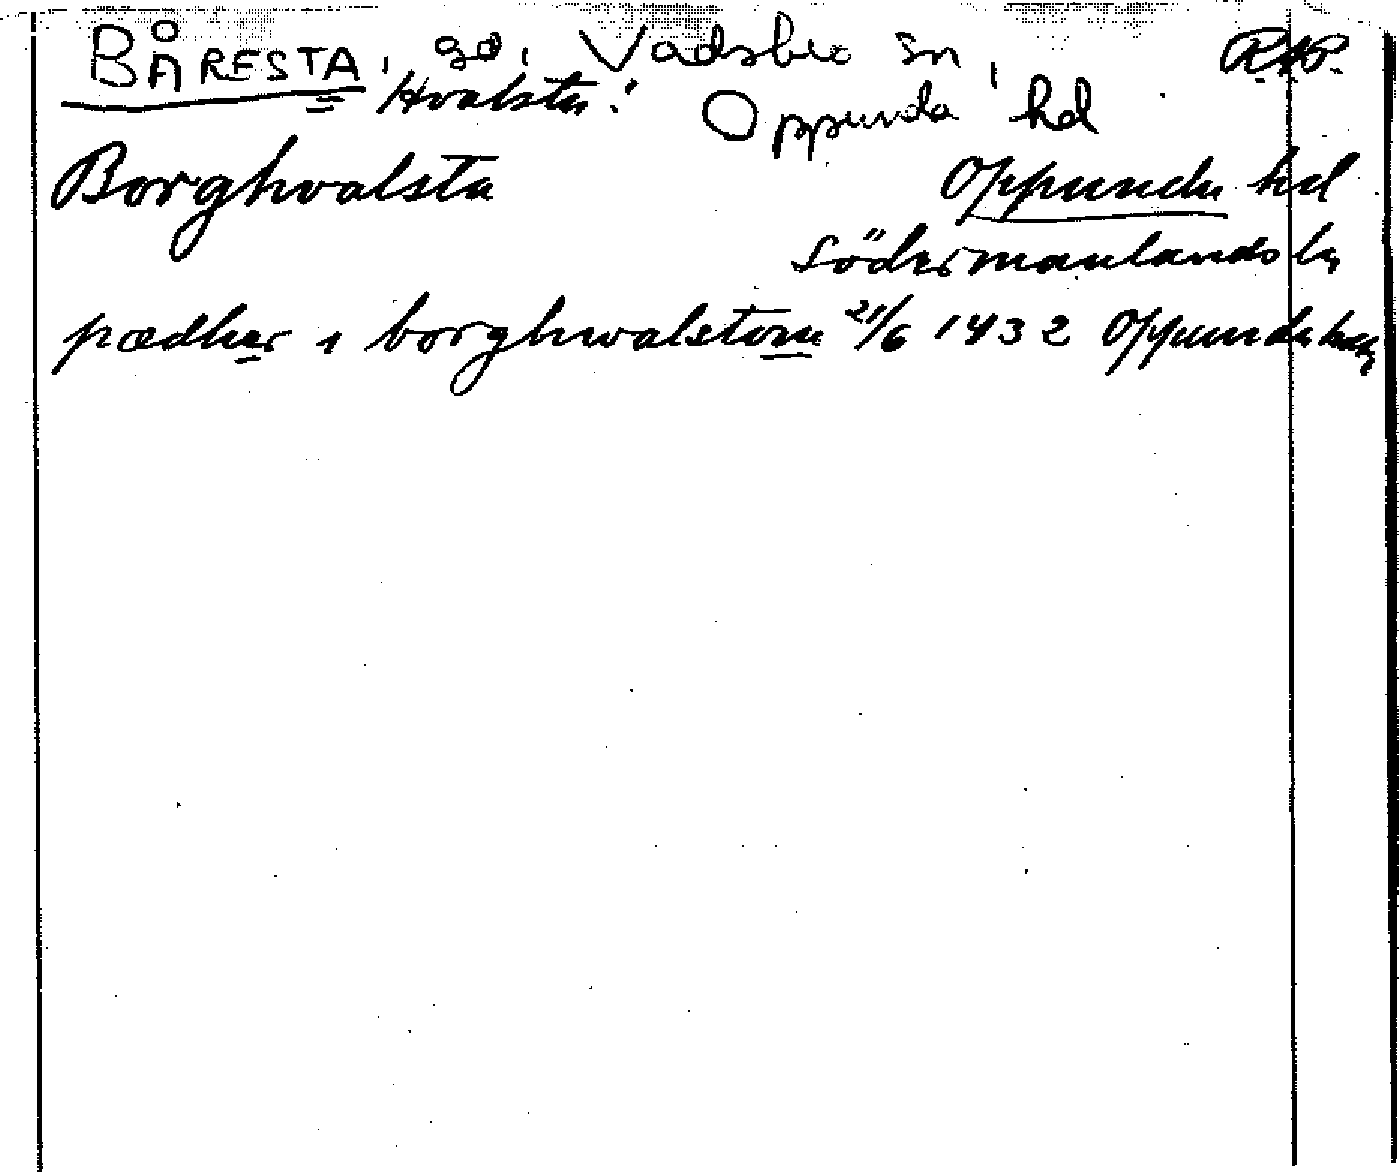 BÅRESTA, gd, Vadsbro sn, R.A.P.
Hvalsta! Oppunda hd
Borghvalsta Oppunda hd
Södermanlands län
pædher i borghwalstom 21/6 1432 Oppunda